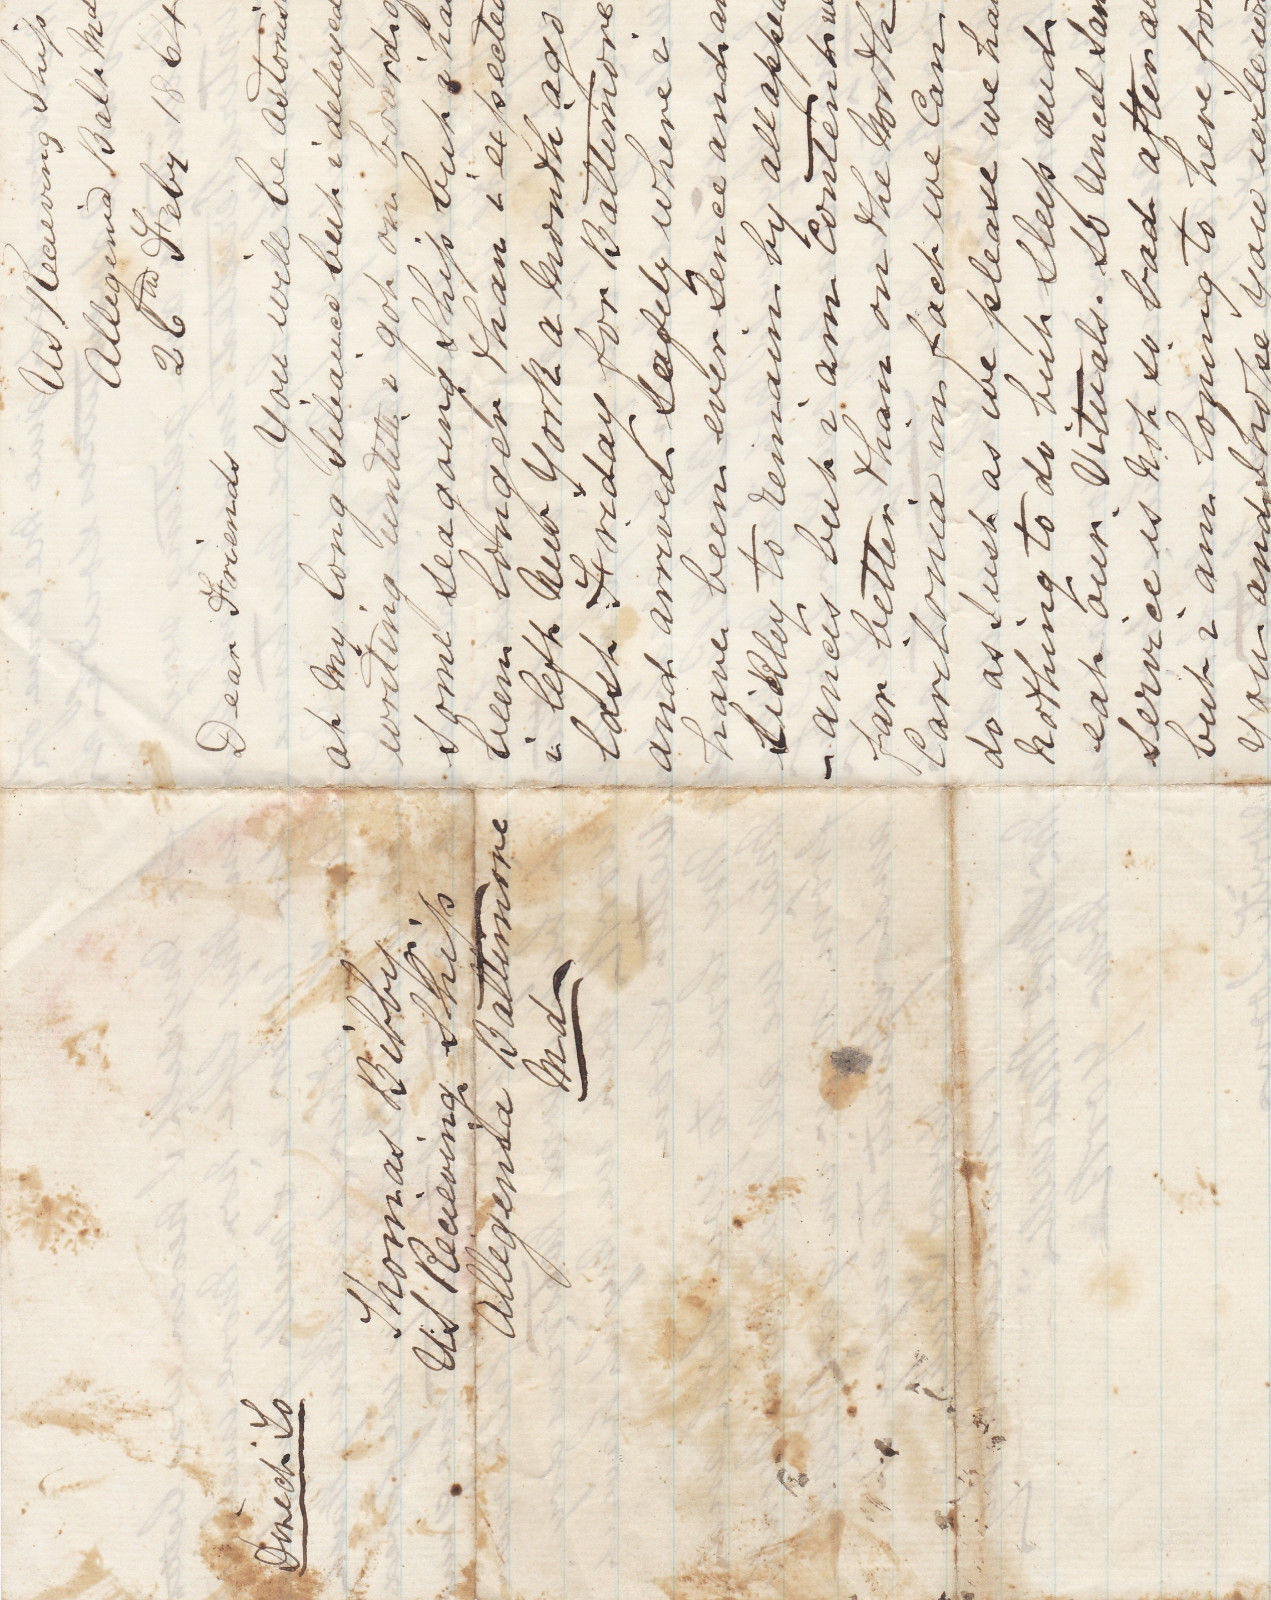 US Recieving Ship
Allegend Balt Md
26th Feby 1864
Dear Friends
You will be astonis
at my long Sileance but i delayed
writing untill i got on board
some seagoing Ship but i ha
been longer than i expected
i left New York a Month ago
last Friday for Baltimore
and arrived Safely where i
have been ever Sence and a
likley to remain by all appea
-ances but i am Content w
far better than on the North
Carilonia in fact we Can
do as Just as we please we ha
Nothing to do but Sleep and
eat our Vituals. So Uncel Sam
Service is Not so bad after al
but i am Longing to here fro
you and whose you
Direct To
Thomas Bibby
US Recieving Ship
Allegena Baltimore
Md